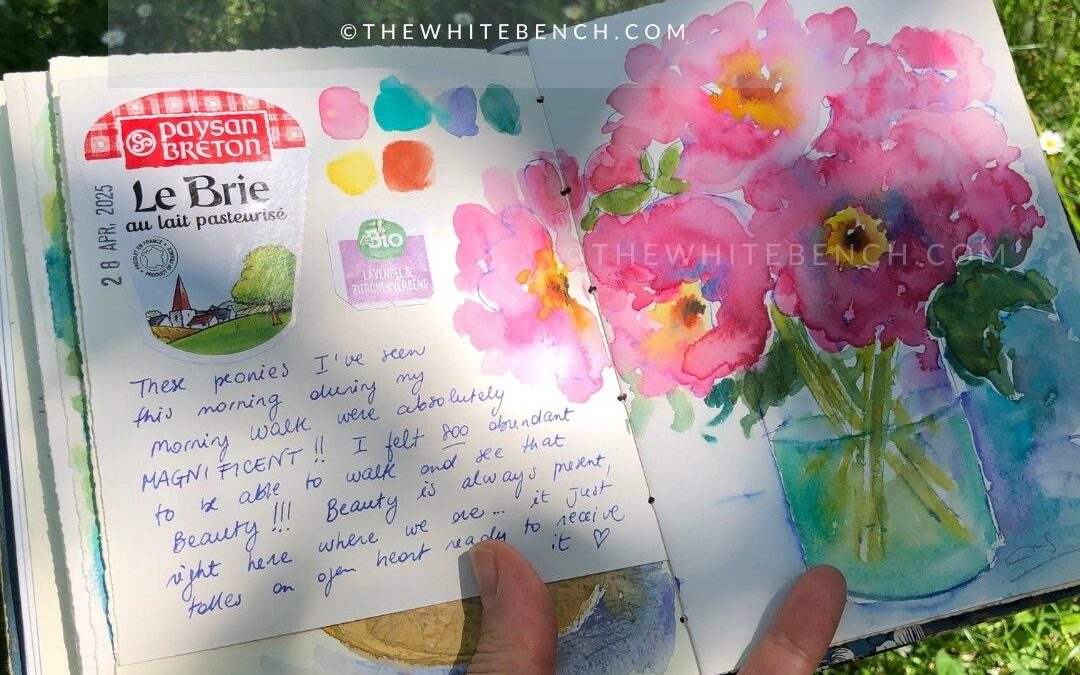 ©THEWHITEBENCH.COM
paysan
BRETON
Le Brie
au lait pasteurisé
28 APR. 2025
PRODUIT EN FRANCE
PRODUCT OF FRANCE
Bio
LAVENDEL &
ZITRONENVERBENE
©THEWHITEBENCH.COM
These peonies I've seen
this morning during my
morning walk were absolutely
MAGNIFICENT!! I felt soo abundant
to be able to walk and see that
Beauty!!! Beauty is always present,
right here where we are... it just
takes an open heart ready to receive
it ♡